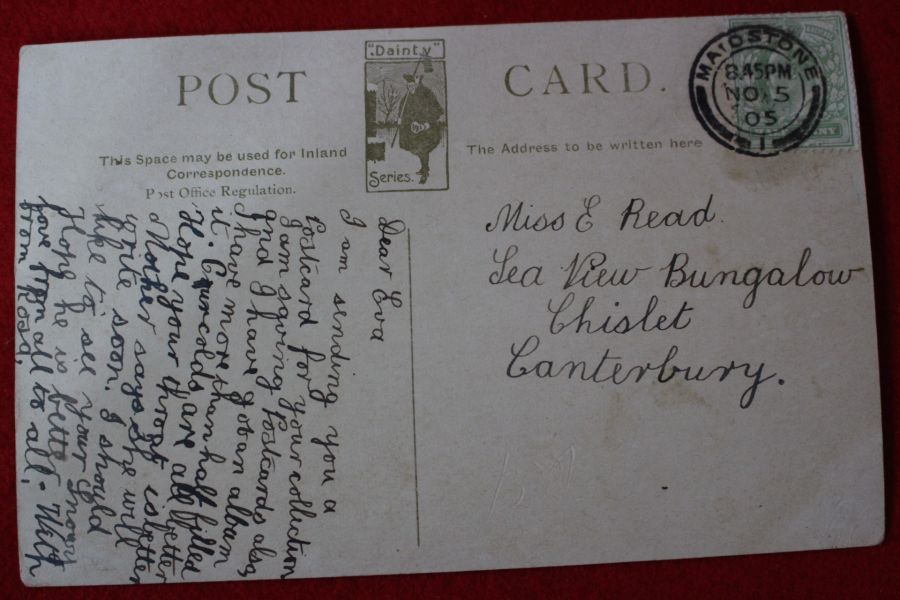 POST CARD.
"Dainty"
Series.
This Space may be used for Inland
Correspondence.
Post Office Regulation.
The Address to be written here
MAIDSTONE
8.45PM
NO 5
05
1
Miss E Read.
Sea View Bungalow
Chislet
Canterbury.
Dear Eva
I am sending you a
Postcard for your collection
I am saving Postcards also,
and I have got an album
I have more than half filled
it. Our colds are all better
Hope your throat is better
Mother says she will
write soon. I should
like to see your
Hope he is better. With
love from all to all.
from Rosa.